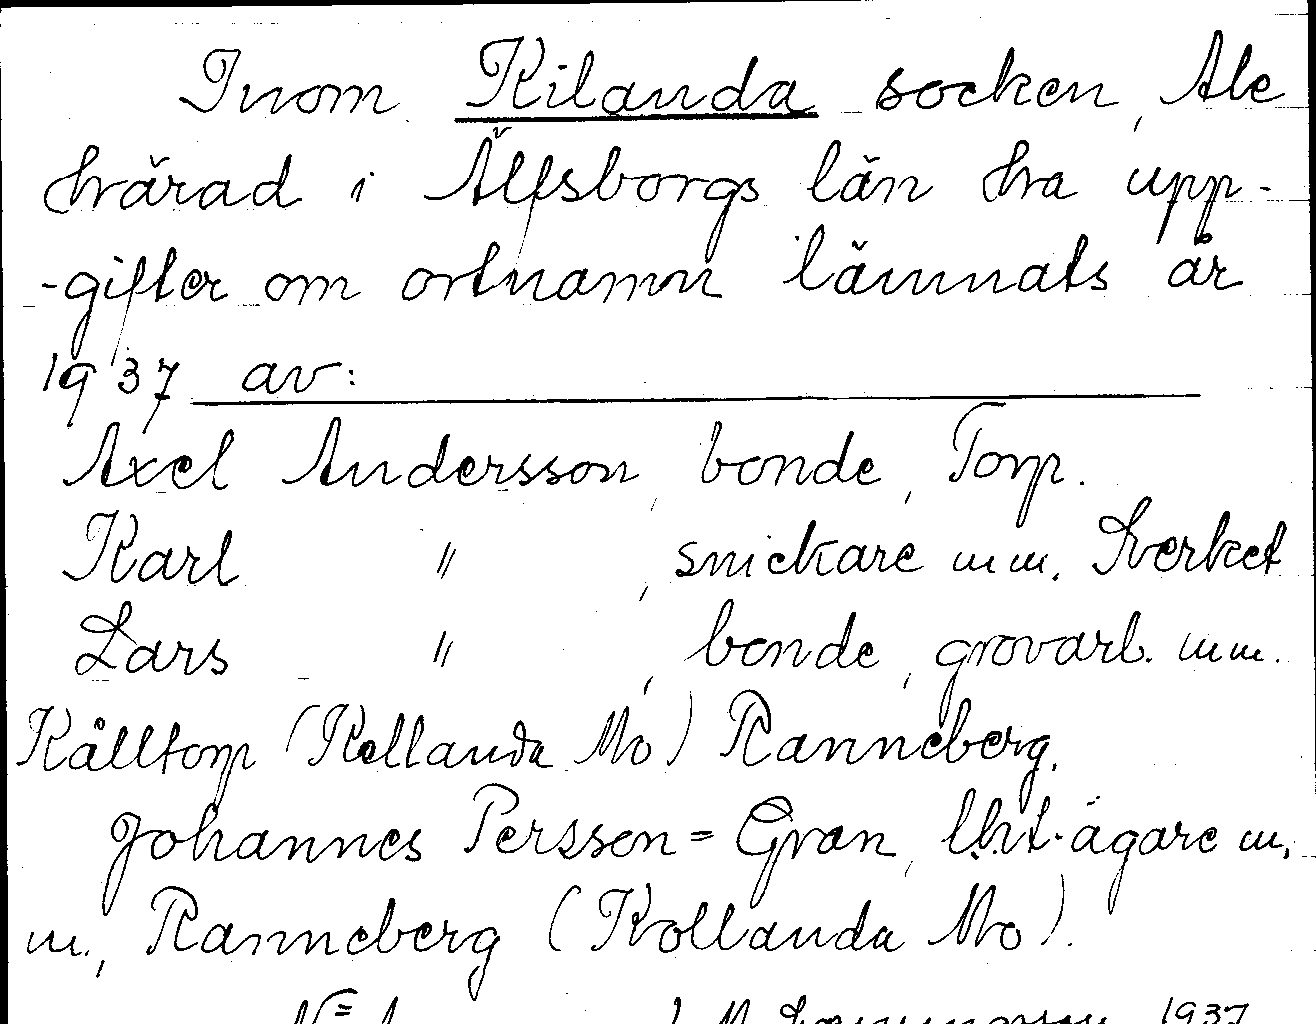 Inom Kilanda socken, Ale
härad i Älfsborgs län ha upp-
-gifter om ortnamn lämnats år
1937 av:
Axel Andersson, bonde, Torp.
Karl " , snickare m m. Sverket
Lars " , bonde, grovarb. m m.
Kålltorp (Kollanda Mo) Ranneberg.
Johannes Persson=Gran, lht.ägare m.
m., Ranneberg (Kollanda Mo).
1937